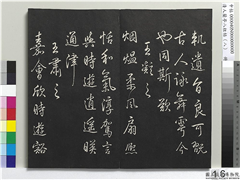 軌遺音良可翫
古人詠舞雩今
也同斯歎
王凝之
烟熅柔風扇熙
怡和氣淳駕言
興時遊逍遙映
通津
王肅之
嘉會欣時遊豁